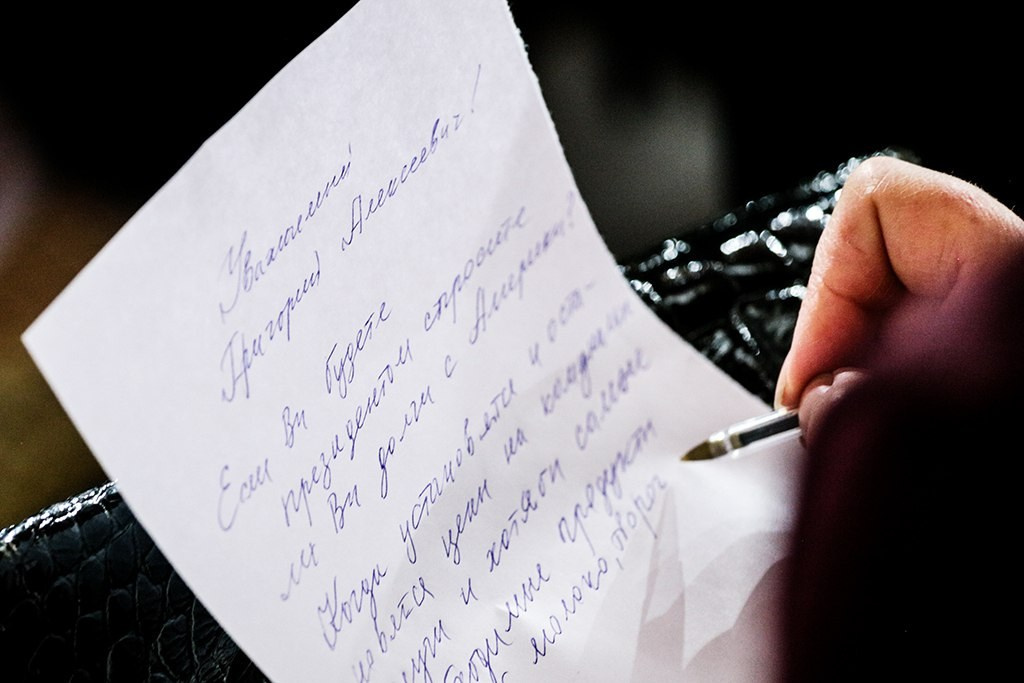 Уважаемый
Григорий Алексеевич!
Если Вы будете
президентом спросите
ли Вы долги с Америки?
Когда установяти и оста-
новятся цены на
и хотябы самые
продукты
молоко, творог